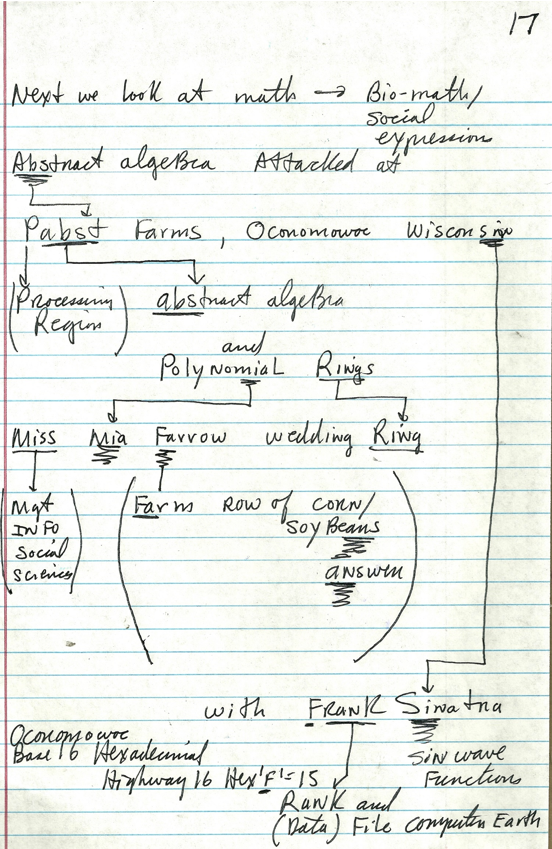 17
Next we look at math → Bio-math/
social
expression
Abstract algebra Attacked at
Pabst Farms, Oconomowoc Wisconsin
(Processing
Region)
abstract algebra
and
Polynomial Rings
Miss Mia Farrow wedding Ring
(Mgt
INFO
Social
Sciences)
(Farms Row of corn/
soy Beans
answer)
with Frank Sinatra
Oconomowoc
Base 16 Hexadecimal
Highway 16 Hex 'F' = 15
Sin wave
Functions
Rank and
(Data) File computer Earth